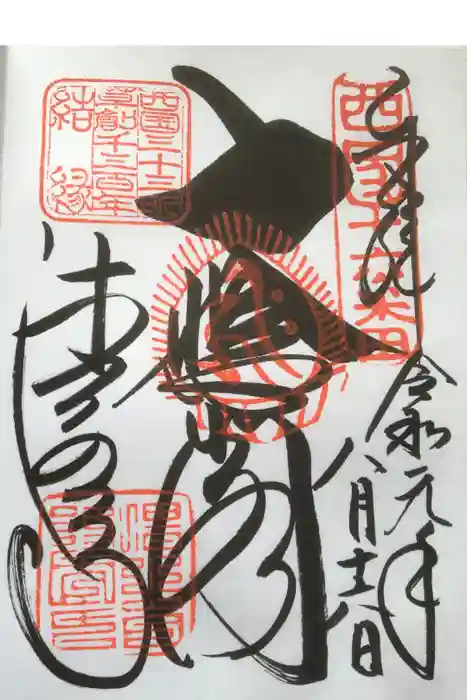 奉拝
西國十六番
令和元年八月十八日
大悲閣
西国三十三所
草創千三百年
結縁
清水寺